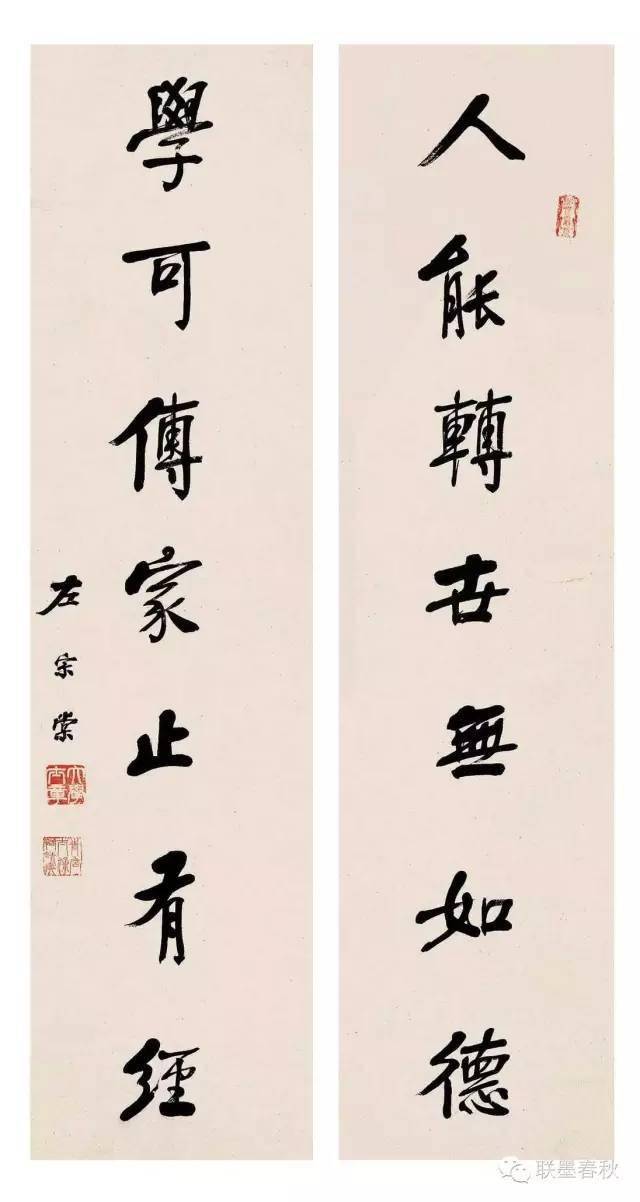 人能轉世無如德
學可傳家止有經
左宗棠
大學士章
联墨春秋